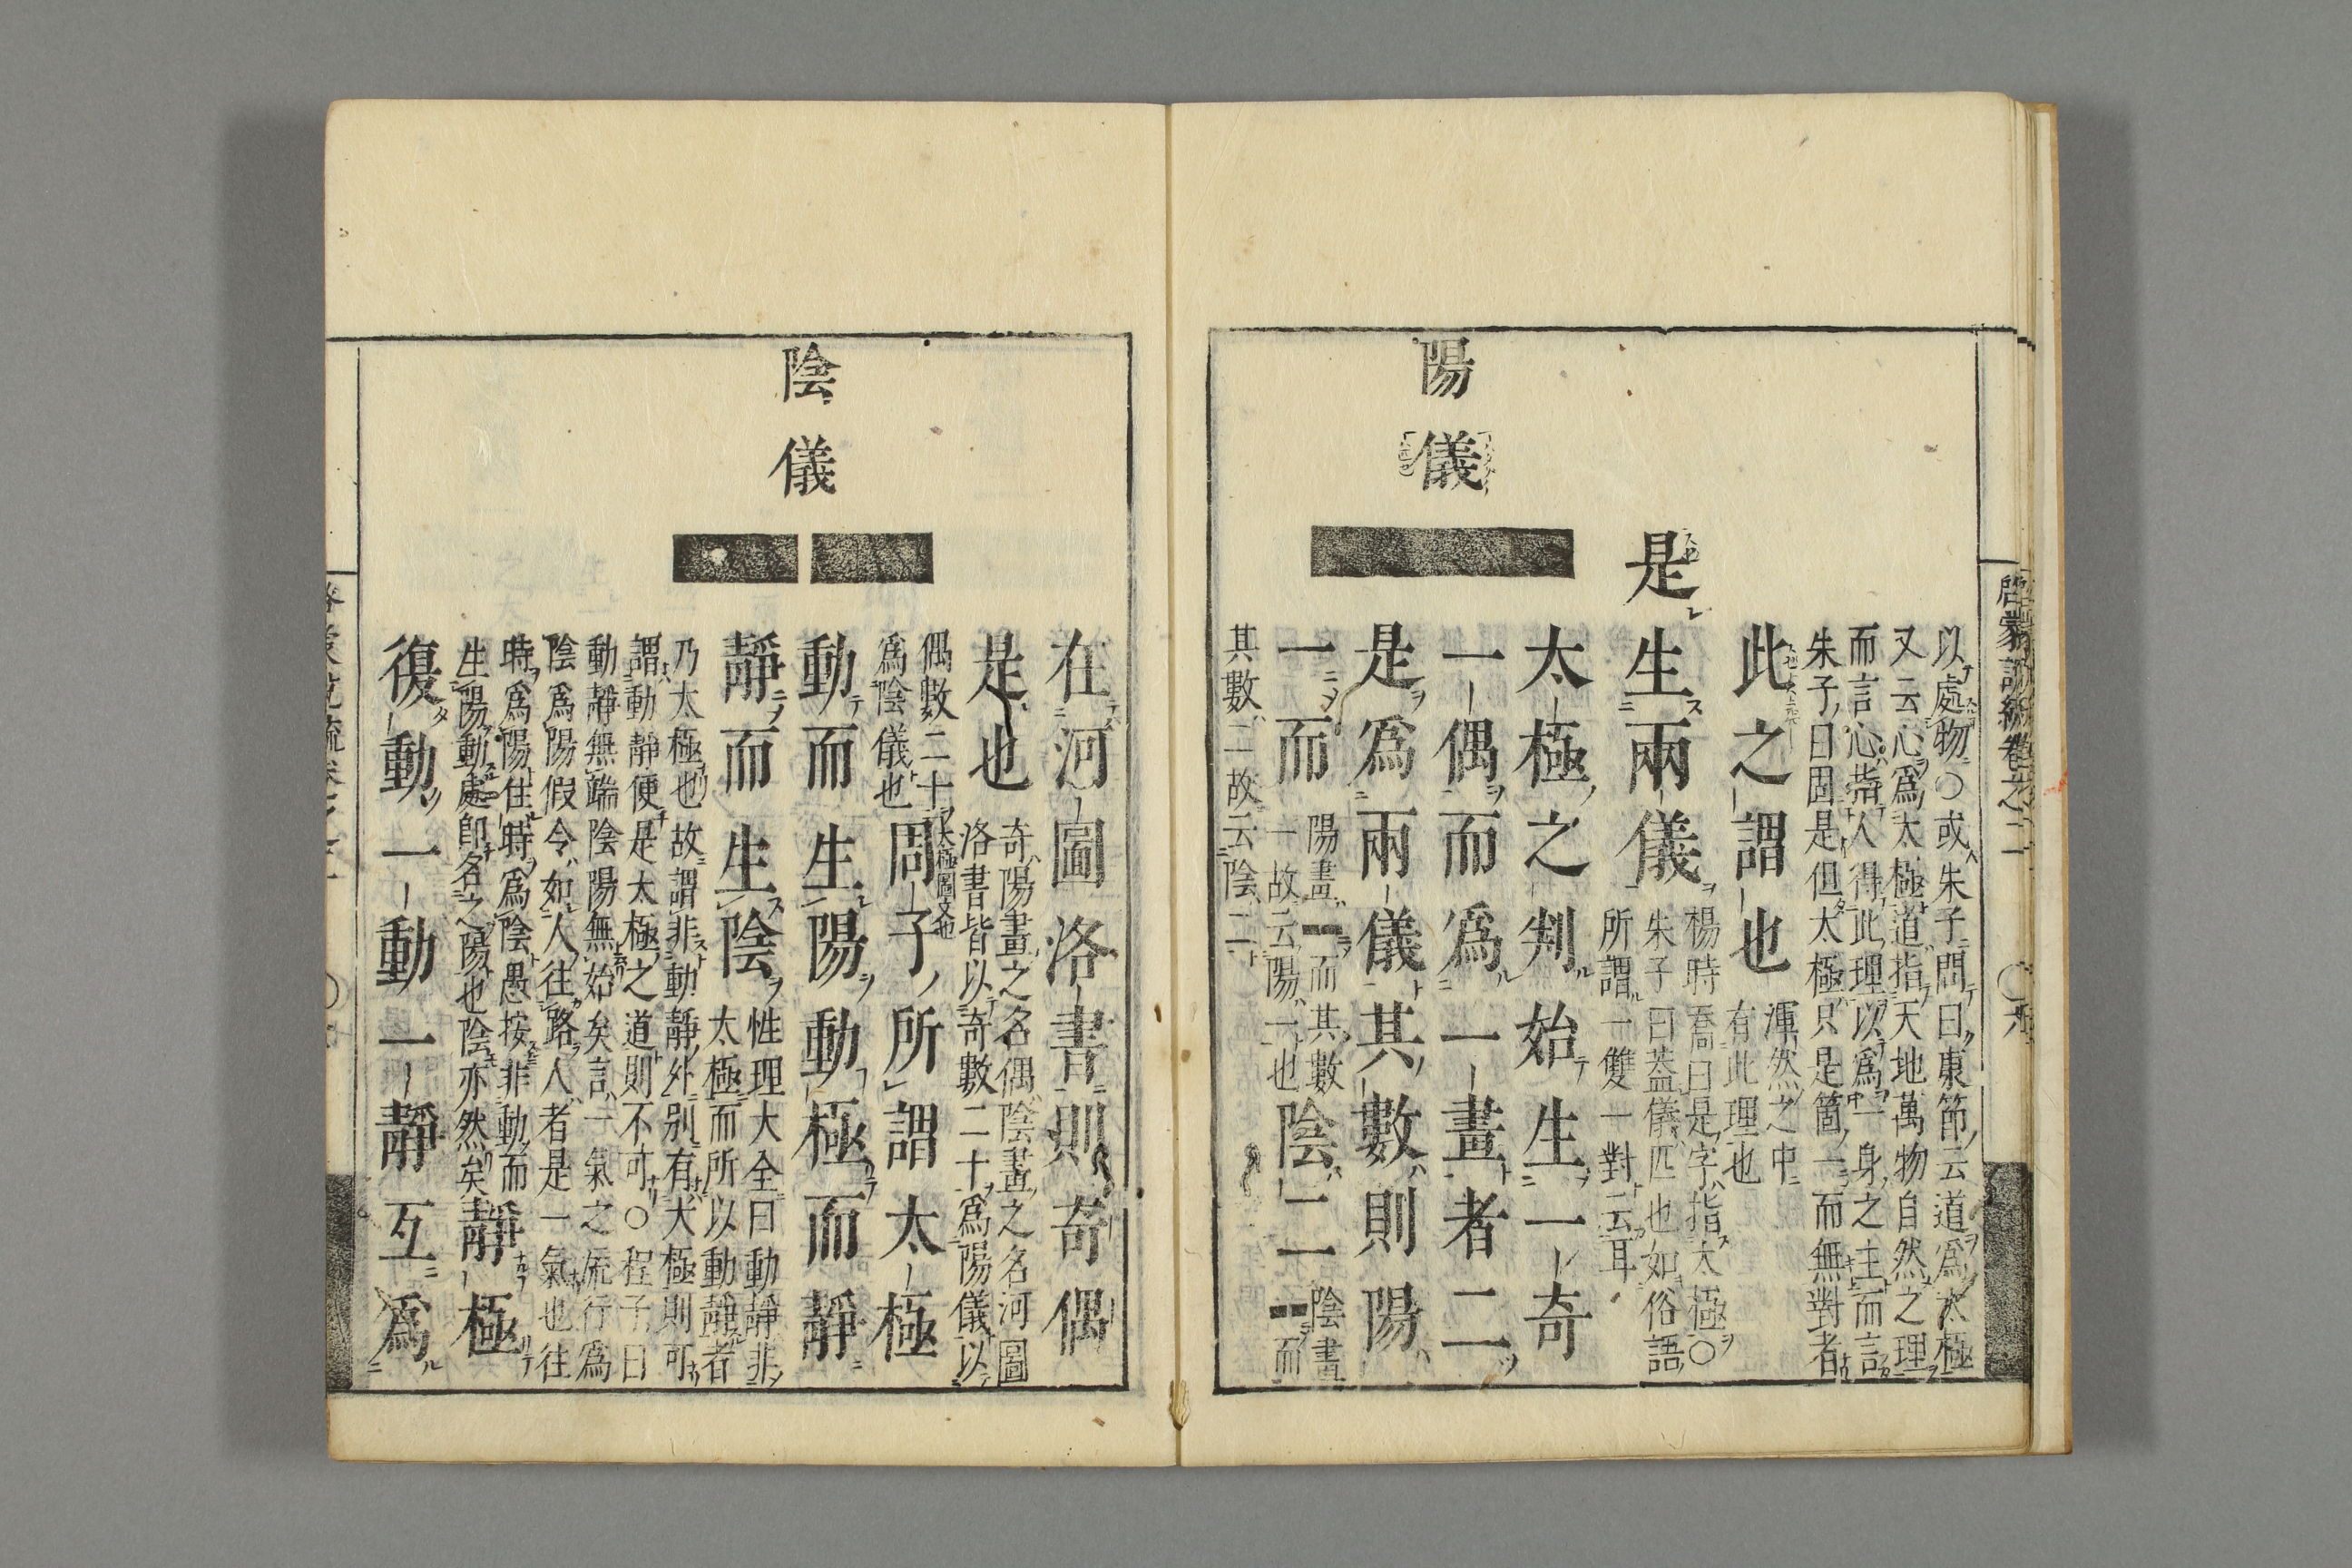 啓蒙説統卷之二
以處物○或朱子問曰康節云道爲太極
又云心爲太極道指天地萬物自然之理
而言心指人得此理以爲一身之主而言
朱子曰固是但太極只是箇一而無對者
此之謂也
渾然之中
有此理也
是生兩儀
楊時喬曰是字指太極○
朱子曰蓋儀匹也如俗語
所謂一雙一對云耳
太極之判始生一奇
一偶而爲一畫者二
陽儀
是爲兩儀其數則陽
一而
陽畫⚊而其數
一故云陽一也
陰二
陰畫⚋而
其數二故云陰二
在河圖洛書則奇偶
是也
奇陽畫之名偶陰畫之名河圖
洛書皆以奇數二十爲陽儀以
偶數二十
爲陰儀也
周子所謂太極
太極圖文也
陰儀
動而生陽動極而靜
靜而生陰
性理大全曰動靜非
太極而所以動靜者
乃太極也故謂非動靜外別有太極則可
謂動靜便是太極之道則不可○程子曰
動靜無端陰陽無始矣言一氣之流行爲
陰爲陽假令如人往路人者是一氣也往
時爲陽住時爲陰愚按非動而
生陽動處卽名之陽也陰亦然矣
靜極
復動一動一靜互爲